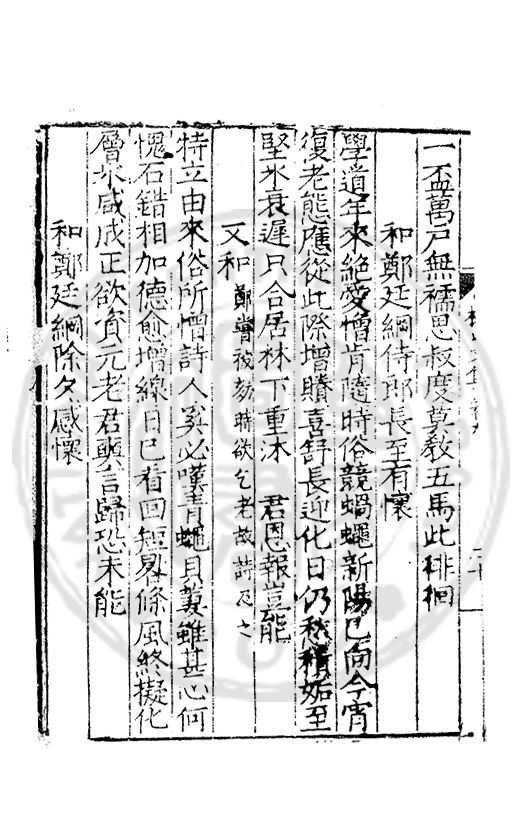 一盃萬戸無襦思叔度莫教五馬此徘徊
和鄭廷綱侍郎長至有懷
學道年來絶愛憎肯隨時俗競蝸蠅新陽已向今宵
復老態應從此際增贖喜舒長迎化日仍愁積妬至
堅氷衰遲只合居林下重沐 君恩報豈能
又和 鄭嘗被劾時欲乞老故詩及之
特立由來俗所憎詩人奚必嘆青蠅貝萋雖甚心何
愧石錯相加德愈增線日已看回短晷條風終擬化
層氷咸戒正欲資元老君輿言歸恐未能
和鄭廷綱除夕感懷